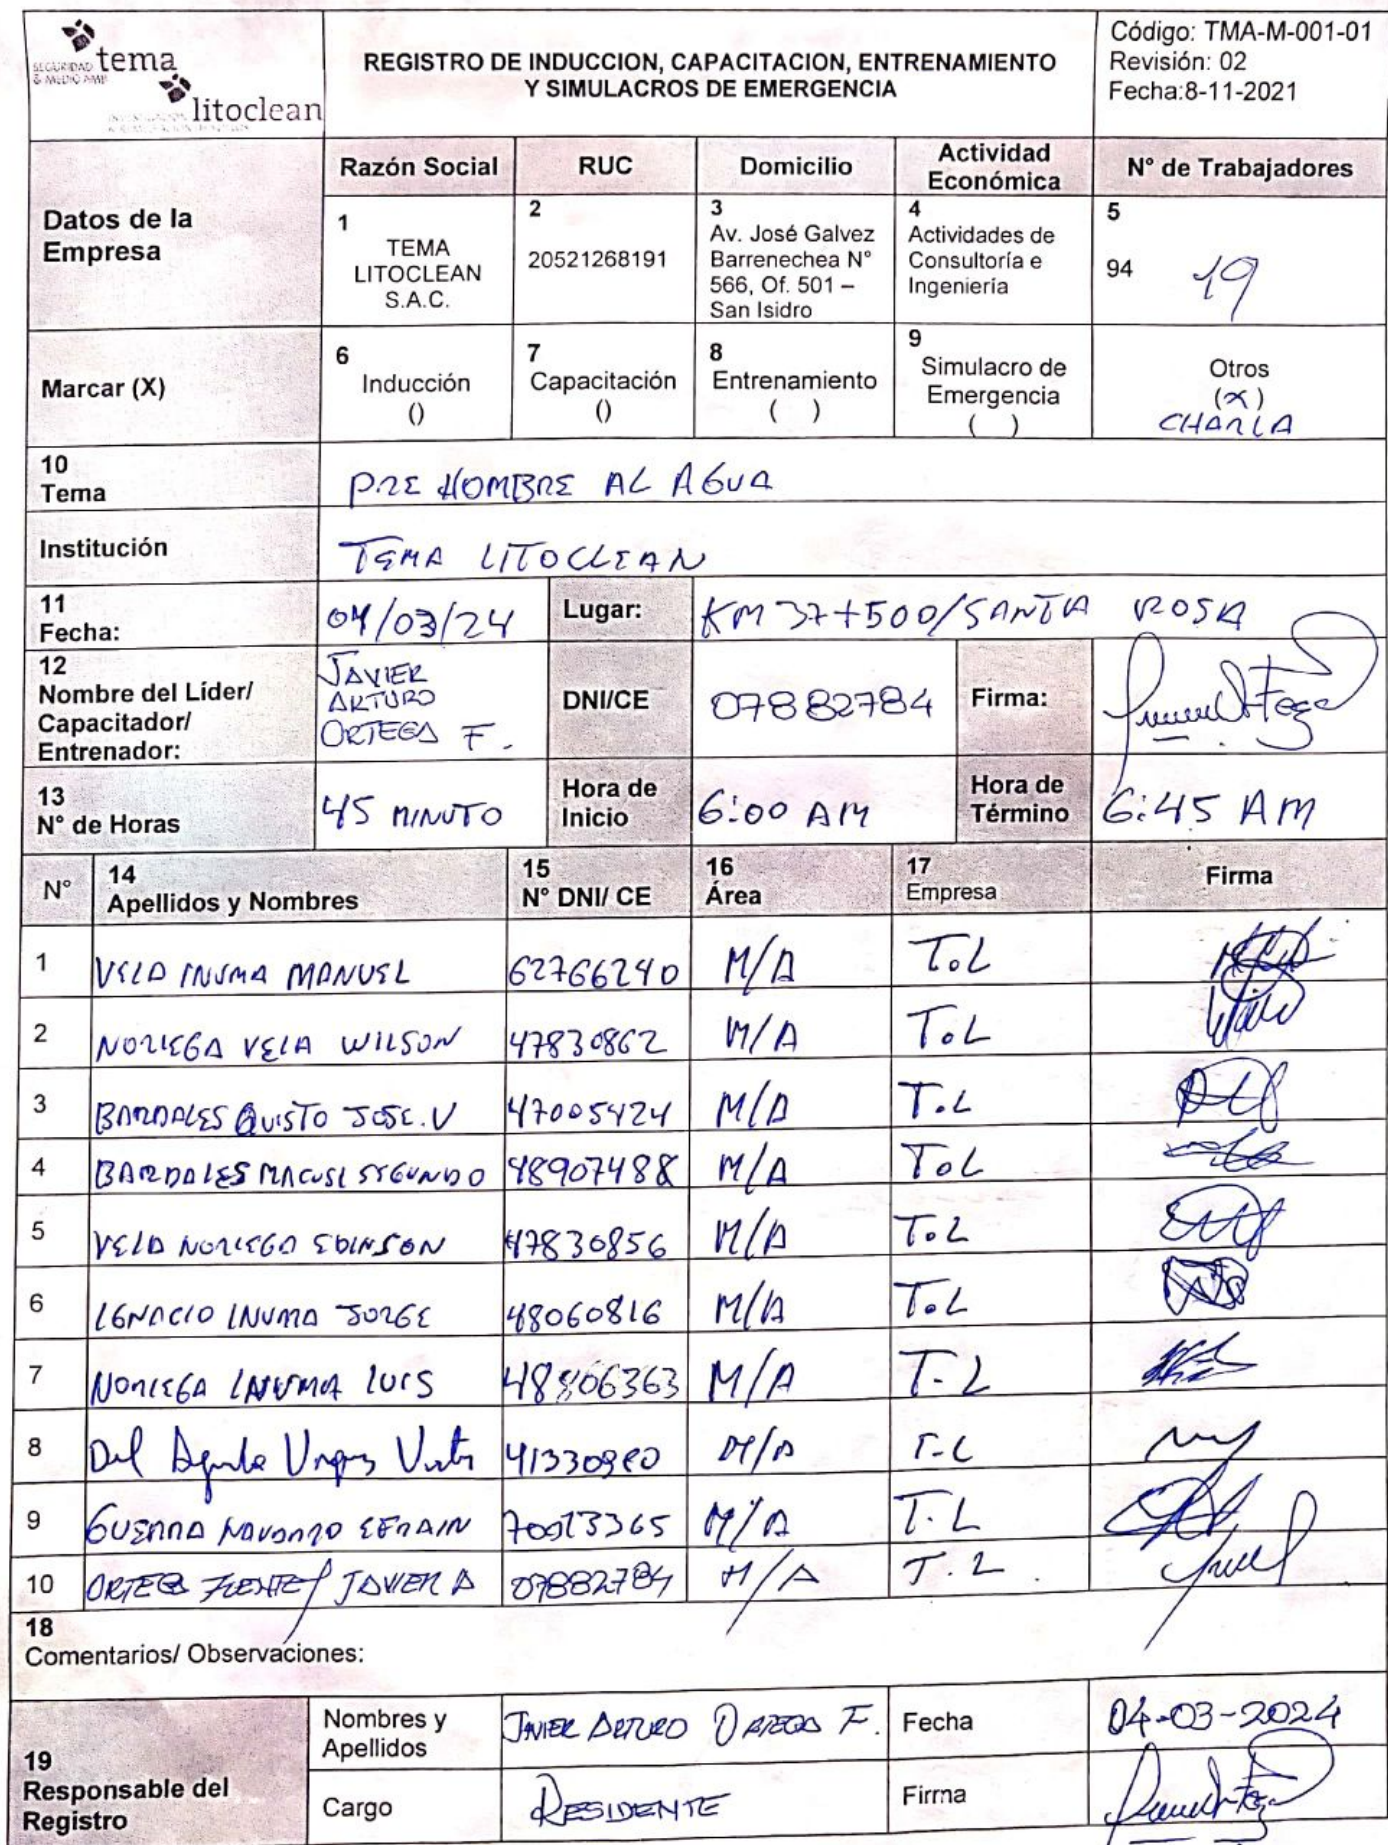 SEGURIDAD & MEDIO AMB
tema
litoclean
REGISTRO DE INDUCCION, CAPACITACION, ENTRENAMIENTO
Y SIMULACROS DE EMERGENCIA
Código: TMA-M-001-01
Revisión: 02
Fecha:8-11-2021
Datos de la
Empresa
Razón Social
RUC
Domicilio
Actividad
Económica
N° de Trabajadores
1
TEMA
LITOCLEAN
S.A.C.
2
20521268191
3
Av. José Galvez
Barrenechea N°
566, Of. 501 –
San Isidro
4
Actividades de
Consultoría e
Ingeniería
5
94 19
Marcar (X)
6
Inducción
()
7
Capacitación
()
8
Entrenamiento
( )
9
Simulacro de
Emergencia
( )
Otros
(x)
CHARLA
10
Tema
PRE HOMBRE AL AGUA
Institución
TEMA LITOCLEAN
11
Fecha:
04/03/24
Lugar:
KM 37+500/SANTA ROSA
12
Nombre del Líder/
Capacitador/
Entrenador:
JAVIER
ARTURO
ORTEGA F.
DNI/CE
07882784
Firma:
13
N° de Horas
45 MINUTO
Hora de
Inicio
6:00 AM
Hora de
Término
6:45 AM
N°
14
Apellidos y Nombres
15
N° DNI/ CE
16
Área
17
Empresa
Firma
1 VELA INUMA MANUEL 62766240 M/A T.L
2 NORIEGA VELA WILSON 47830862 M/A T.L
3 BARDALES QUISTO JOSE.V 47005424 M/A T.L
4 BARDALES MACUSI SEGUNDO 48907488 M/A T.L
5 VELA NORIEGA EDINSON 47830856 M/A T.L
6 IGNACIO INUMA JORGE 48060816 M/A T.L
7 NORIEGA INUMA LUIS 48806363 M/A T.L
8 Del Aguila 41330980 M/A T.L
9 GUERRA NAVARRO EFRAIN M/A T.L
10 ORTEGA FUENTES JAVIER A 07882784 M/A T.L.
18
Comentarios/ Observaciones:
19
Responsable del
Registro
Nombres y
Apellidos
JAVIER ARTURO ORTEGA F.
Fecha
04-03-2024
Cargo
RESIDENTE
Firma